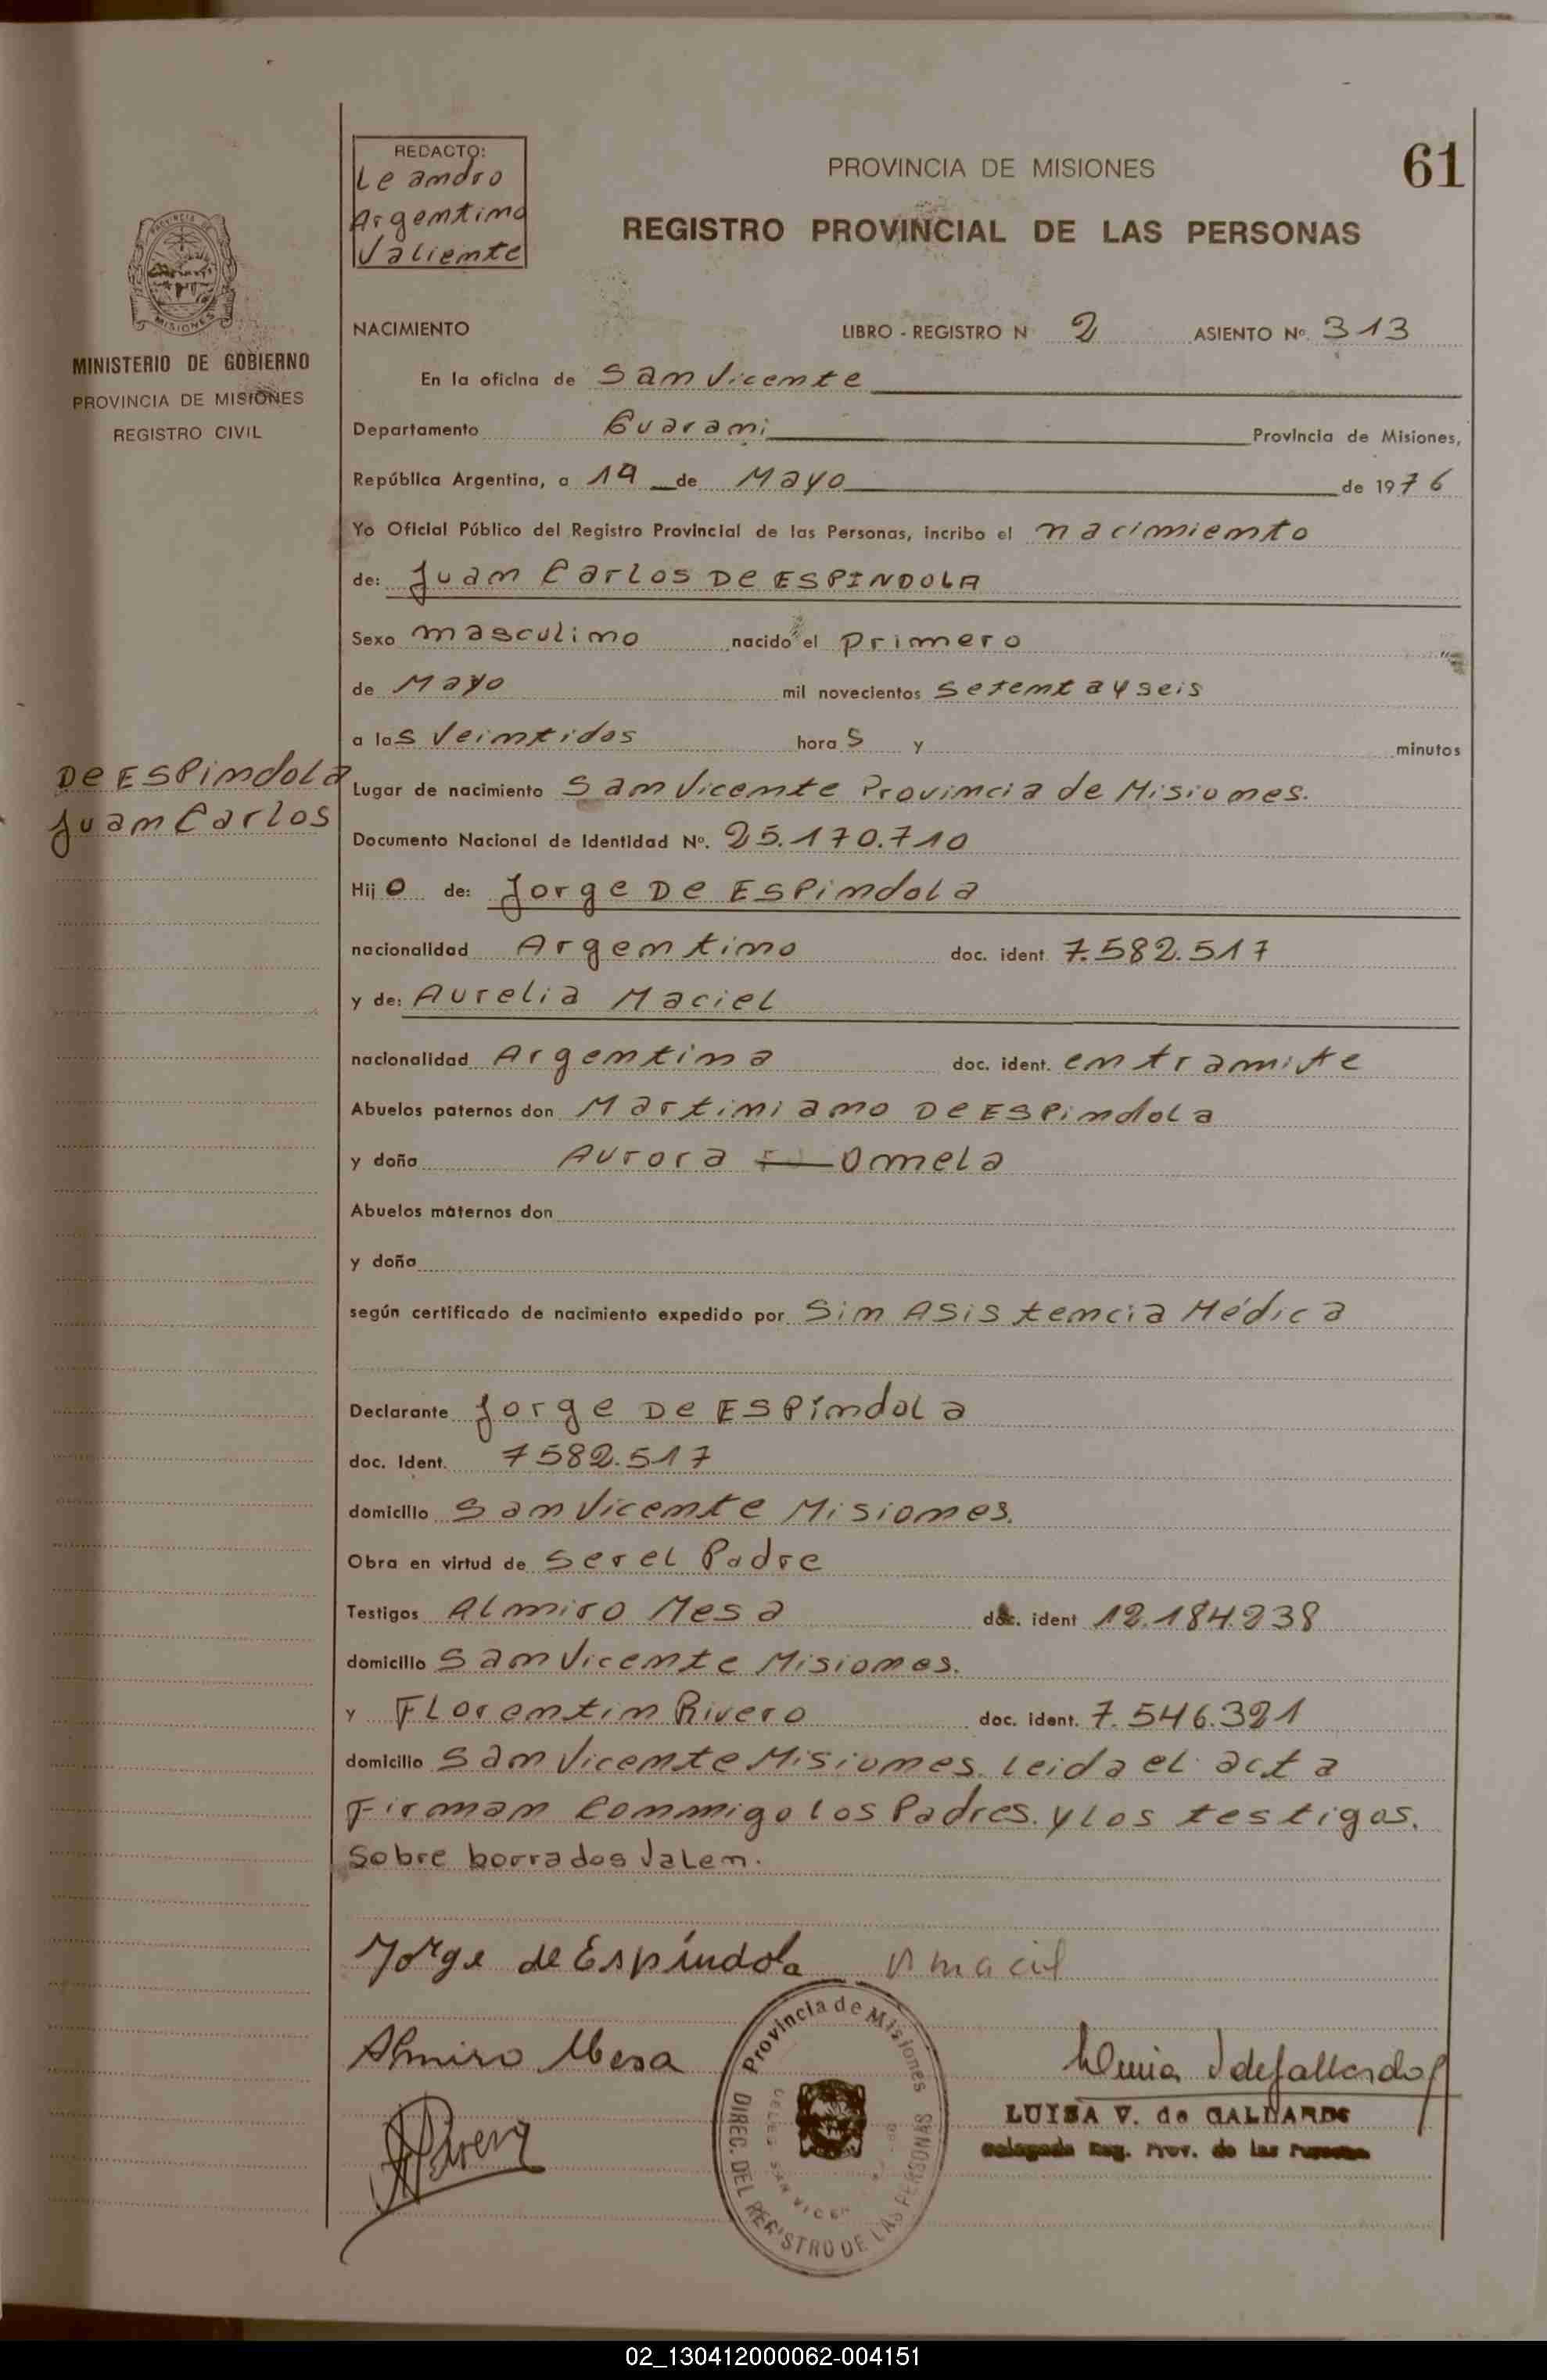 61
REDACTO:
Leandro
Argentino
Valiente
PROVINCIA DE MISIONES
REGISTRO PROVINCIAL DE LAS PERSONAS
MINISTERIO DE GOBIERNO
PROVINCIA DE MISIONES
REGISTRO CIVIL
NACIMIENTO LIBRO - REGISTRO N 2 ASIENTO Nº. 313
En la oficina de San Vicente
Departamento Guarani Provincia de Misiones,
República Argentina, a 19 de Mayo de 1976
Yo Oficial Público del Registro Provincial de las Personas, incribo el nacimiento
de: Juan Carlos De ESPINDOLA
Sexo masculino nacido el primero
de Mayo mil novecientos setentayseis
a las Veintidos horas y minutos
De Espindola
Juan Carlos
Lugar de nacimiento San Vicente Provincia de Misiones.
Documento Nacional de Identidad Nº. 25.170.710
Hijo de: Jorge De Espindola
nacionalidad Argentino doc. ident. 7.582.517
y de: Aurelia Maciel
nacionalidad Argentina doc. ident. en tramite
Abuelos paternos don Martiniano De Espindola
y doña Aurora Ornela
Abuelos maternos don
y doña
según certificado de nacimiento expedido por Sin Asistencia Médica
Declarante Jorge De Espíndola
doc. Ident. 7582.517
domicilio San Vicente Misiones.
Obra en virtud de Ser el Padre
Testigos Almiro Mesa doc. ident 12.184.238
domicilio San Vicente Misiones.
y Florentin Rivero doc. ident. 7.546.321
domicilio San Vicente Misiones. Leida el acta
Firman Conmigo los Padres. y los testigos.
Sobre borrados Valen.
Jorge de Espíndola A macil
Almiro Mesa
Provincia de Misiones
DIREC. DEL REGISTRO DE LAS PERSONAS
LUISA V. de GALLARDO
Delegada Reg. Prov. de las Personas
02_130412000062-004151